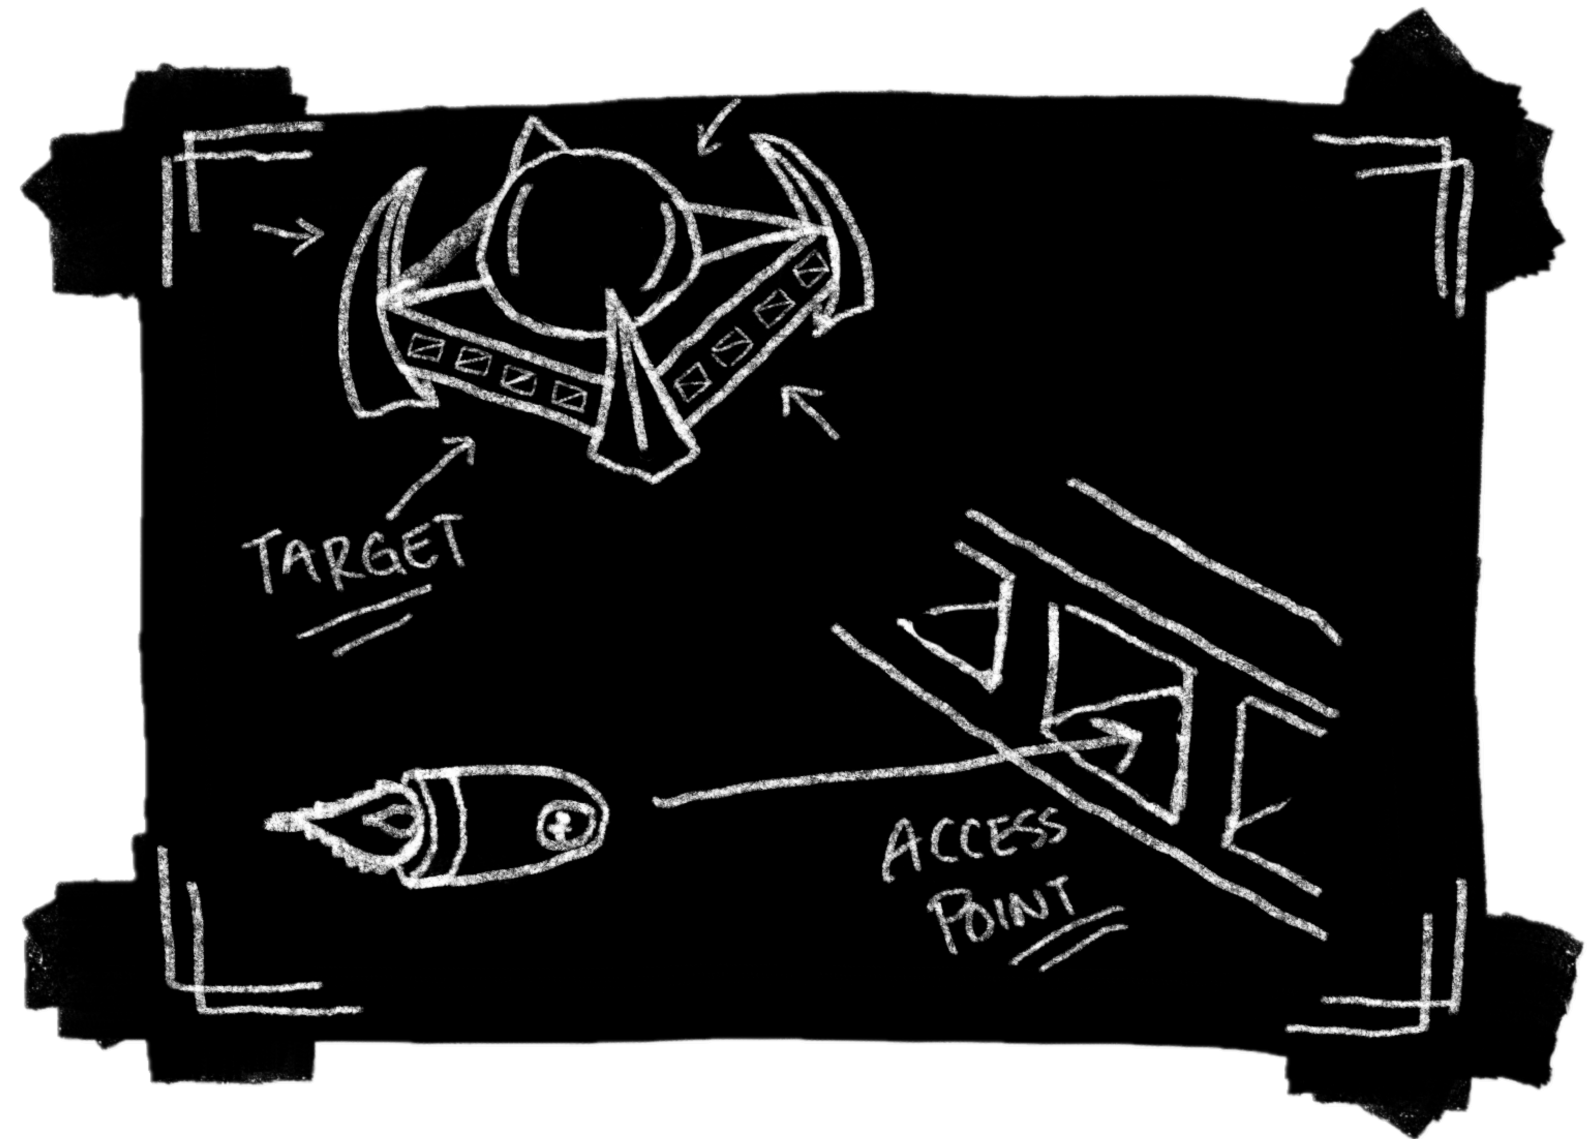 TARGET
ACCESS
POINT